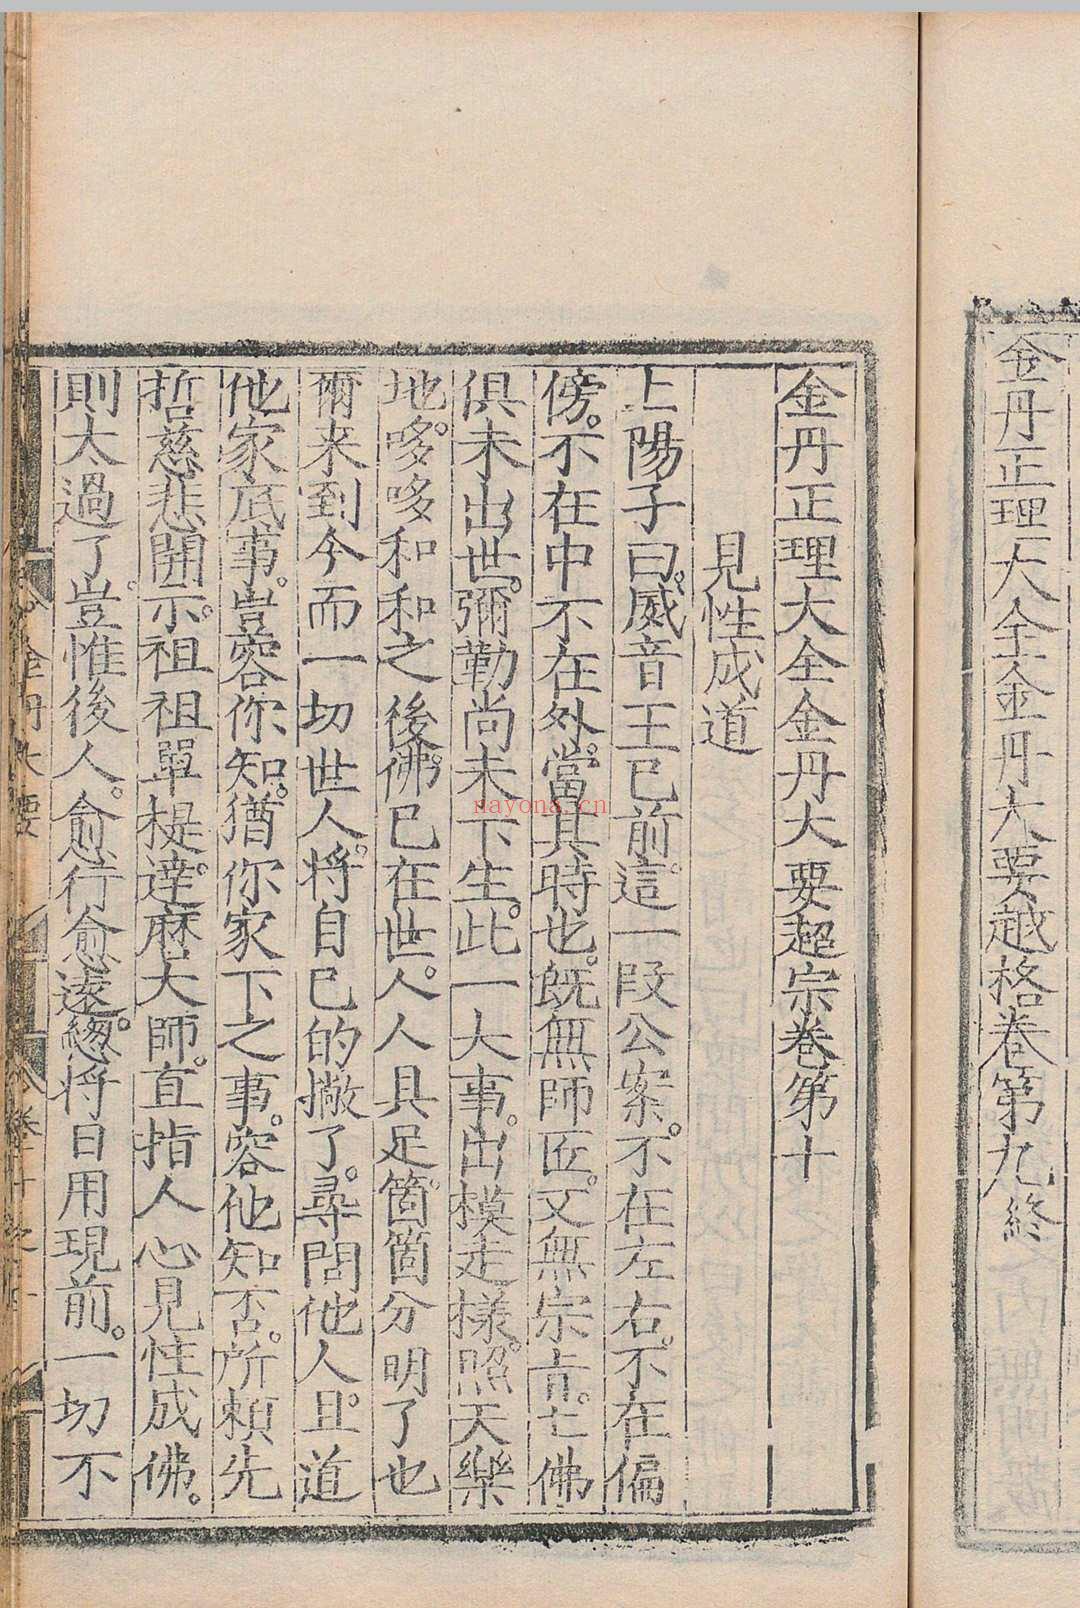 金丹正理大全金丹大要越格卷第九終
金丹正理大全金丹大要超宗卷第十
見性成道
上陽子曰。威音王已前。這一段公案。不在左右。不在偏
傍。不在中不在外。當其時也。旣無師匠。又無宗旨。七佛
俱未出世。彌勒尚未下生。此一大事。出模走樣。照天樂
地。哆哆和和之後。佛已在世。人人具足。箇箇分明了也
爾来到今而一切世人。將自已的撇了。尋問他人。且道
他家底事。豈容你知。猶你家下之事。容他知否。所頼先
哲慈悲開示。祖祖單提。達麽大師。直指人心見性成佛。
則太過了。豈惟後人。愈行愈遠。緫将日用現前。一切不
金丹大要
卷十之
nayona.cn